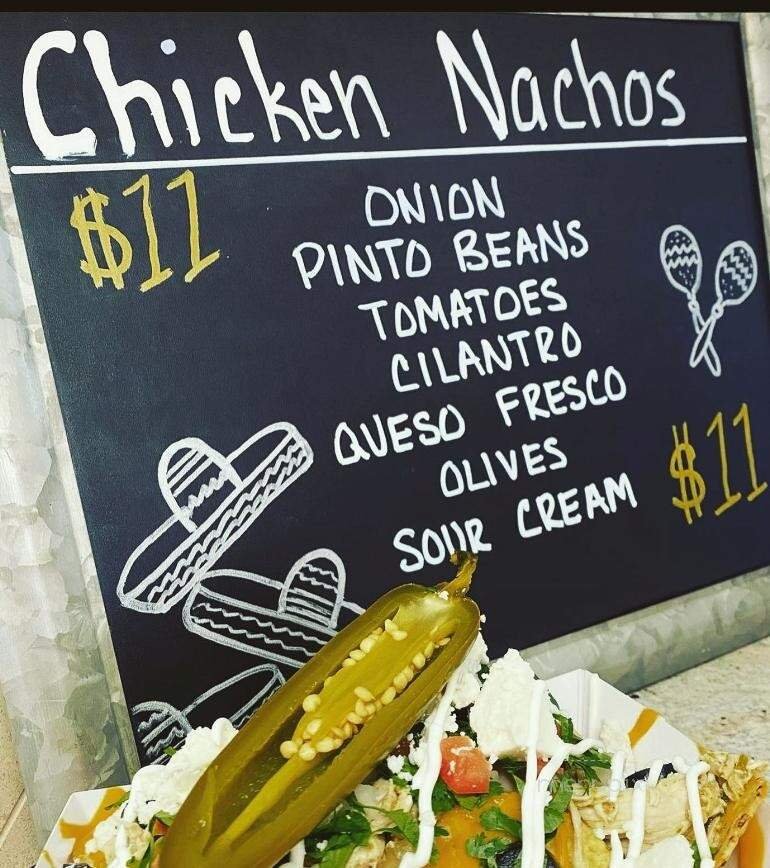 Chicken Nachos
$11
ONION
PINTO BEANS
TOMATOES
CILANTRO
QUESO FRESCO
OLIVES
SOUR CREAM
$11